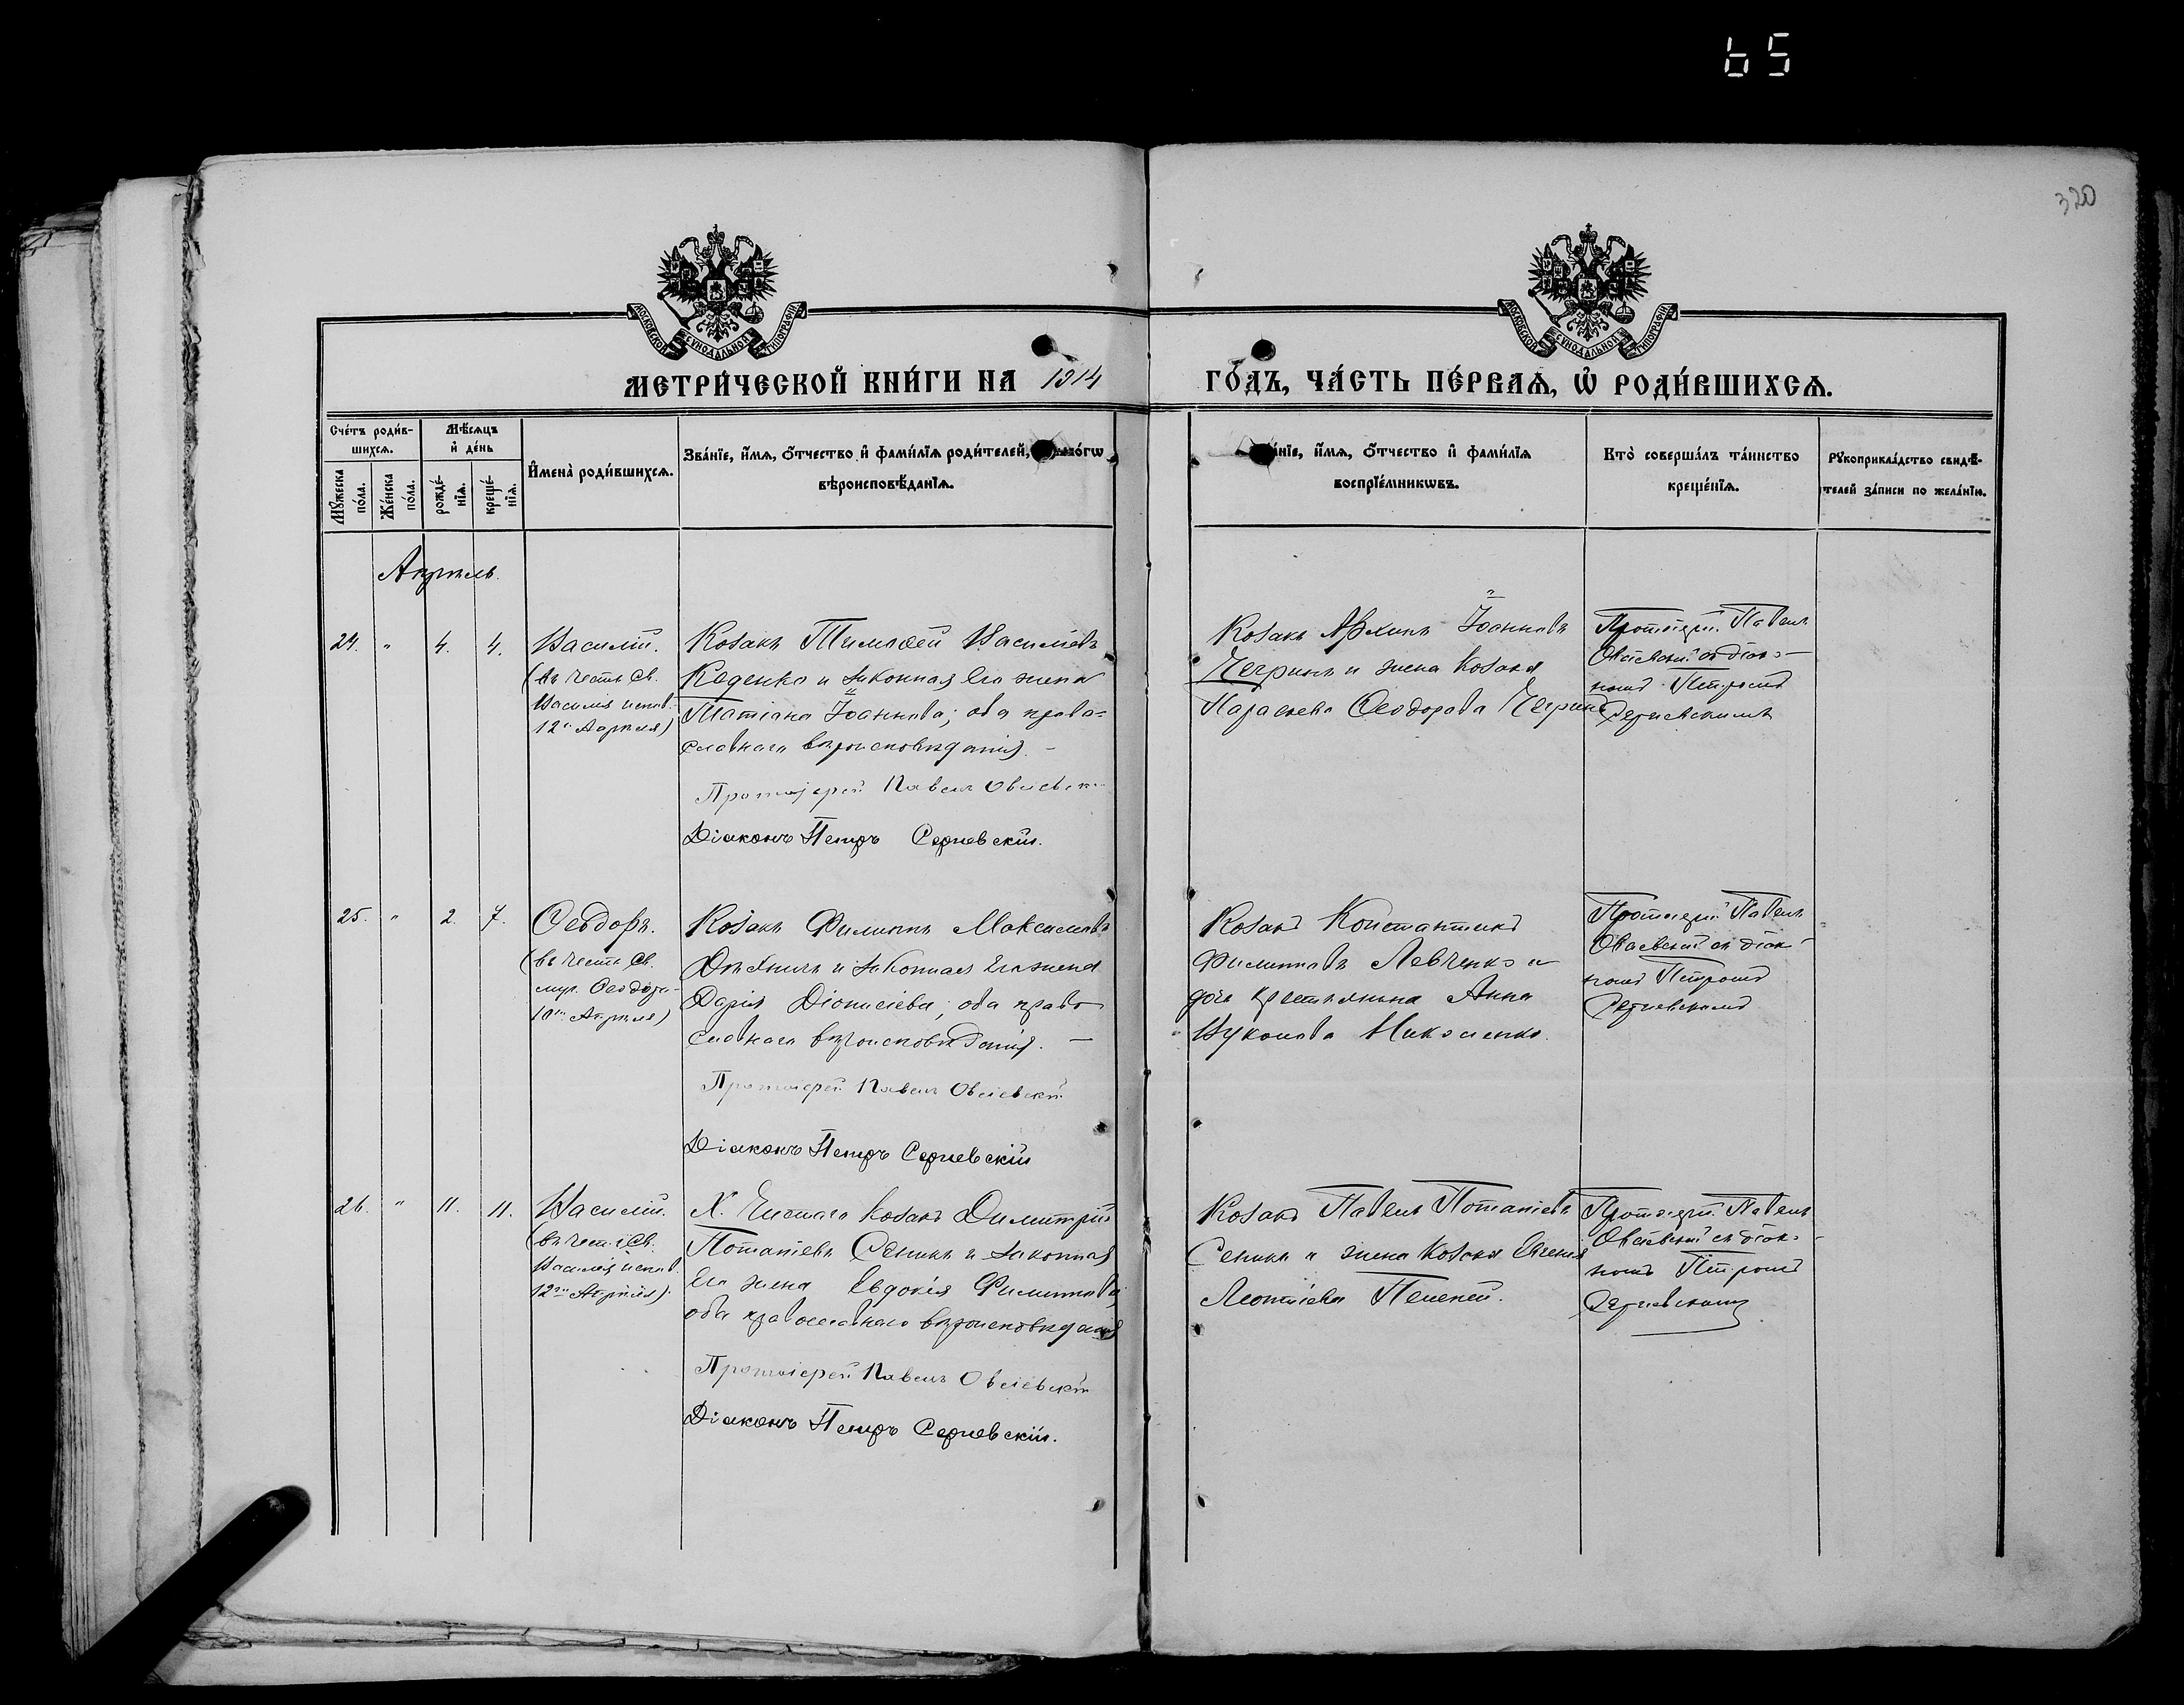 65
320
МОСКОВСКОЙ СѴНОДАЛЬНОЙ ТИПОГРАФІИ
МОСКОВСКОЙ СѴНОДАЛЬНОЙ ТИПОГРАФІИ
МЕТРИ́ЧЕСКОЙ КНИ́ГИ НА 1914
ГО́ДЪ, ЧА́СТЬ ПЕ́РВАѦ, Ѡ РОДИ́ВШИХСѦ.
Сче́тъ роди́в-
шихсѧ.
Мꙋ́жеска по́ла.
Же́нска по́ла.
Мѣ́сѧцъ
и де́нь
рожде́-нїѧ.
креще́-нїѧ.
Имена̀ роди́вшихсѧ.
Зва́нїе, и́мѧ, о́тчество и фами́лїѧ роди́телей,
вѣроисповѣ́данїѧ.
и́мѧ, о́тчество и фами́лїѧ
воспрїе́мникѡвъ.
Кто̀ соверша́лъ та́инство
креще́нїѧ.
Рꙋкоприкла́дство свидѣ́-
телей за́писи по жела́нїю.
Апрѣль.
24. " 4. 4.
Василій.
(въ честь св.
Василія испов.
12го Апрѣля)
Козакъ Тимоѳей Василіевъ
и законная его жена
Татіана Іоаннова; оба право-
славнаго вѣроисповѣданія. -
Протоіерей Павелъ
Діаконъ Петръ Сергіевскій.
Козакъ Іоанновъ
и жена козака
Параскева Ѳеодорова
Протоіерей Павелъ
съ діако-
номъ Петромъ
Сергіевскимъ
25. " 2. 7.
Ѳеодоръ.
(въ честь св.
муч. Ѳеодора
10го Апрѣля)
Козакъ Филиппъ Максимовъ
и законная его жена
Дарія Діонисіева; оба право-
славнаго вѣроисповѣданія. -
Протоіерей Павелъ
Діаконъ Петръ Сергіевскій
Козакъ Константинъ
Филипповъ Левченко и
дочь крестьянина Анна
Протоіерей Павелъ
съ діако-
номъ Петромъ
Сергіевскимъ
26. " 11. 11.
Василій.
(въ честь св.
Василія испов.
12го Апрѣля).
Х. козакъ Димитрій
Потапіевъ Сеникъ и законная
его жена Евдокія Филиппова;
оба православнаго вѣроисповѣданія
Протоіерей Павелъ
Діаконъ Петръ Сергіевскій.
Козакъ Павелъ Потапіевъ
Сеникъ и жена козака Евгенія
Леонтіева
Протоіерей Павелъ
съ діако-
номъ Петромъ
Сергіевскимъ